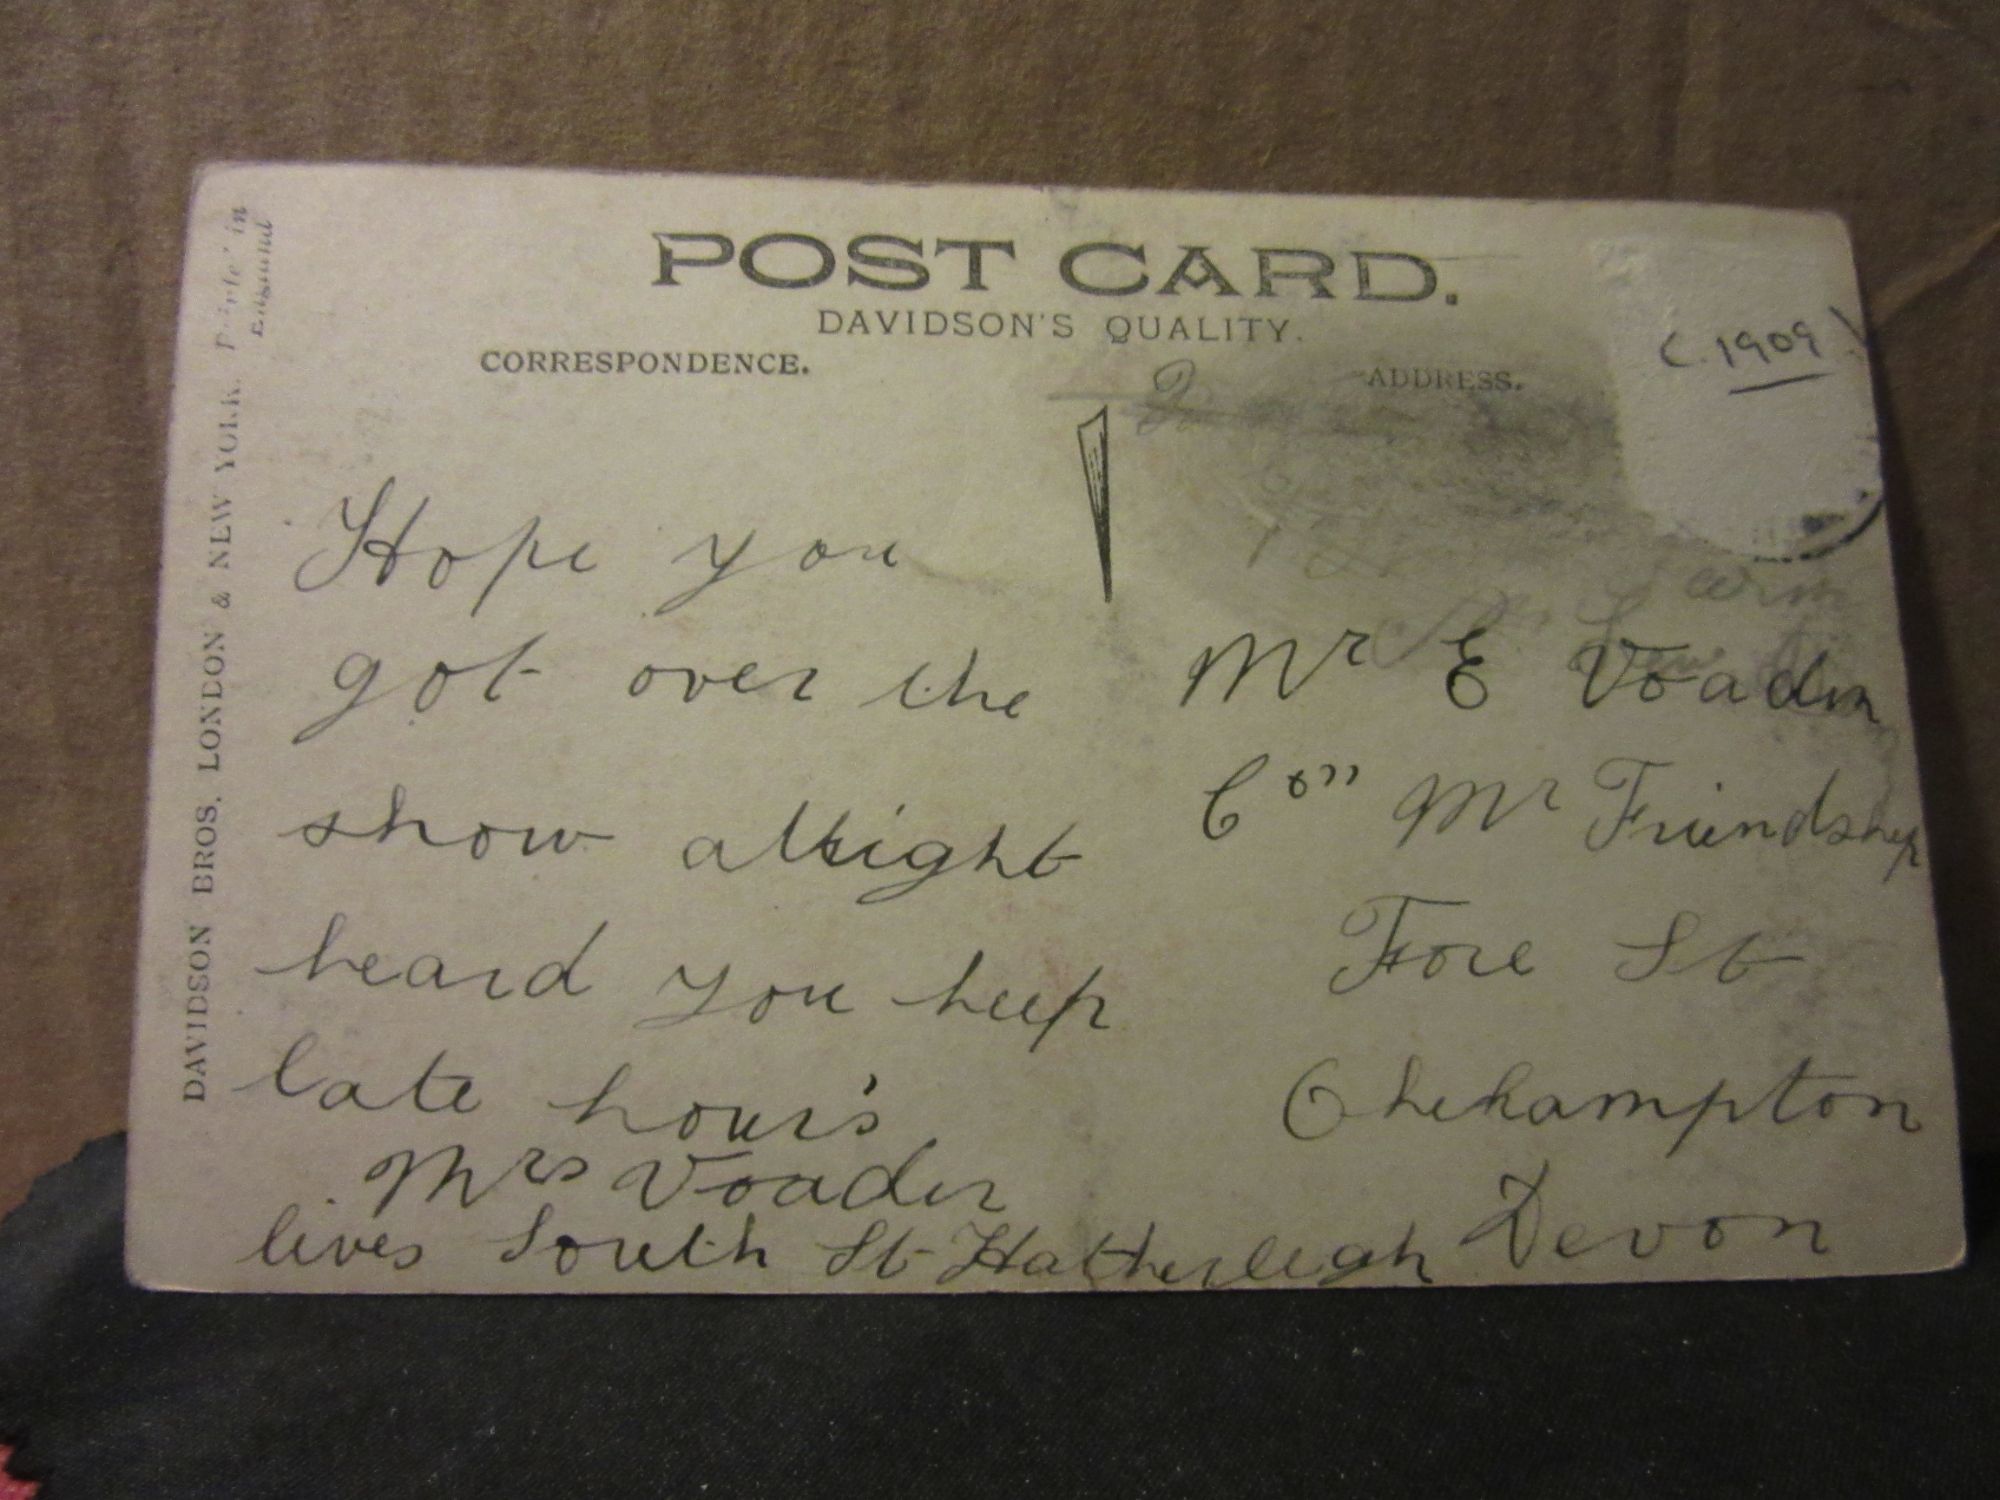 POST CARD.
DAVIDSON'S QUALITY.
CORRESPONDENCE.
ADDRESS.
C. 1909
DAVIDSON BROS. LONDON & NEW YORK.
Hope you
got over the
show allright
heard you keep
late hour's
Mrs Voader
lives South St Hatherleigh
Mr E Voaden
C/o Mr Friendship
Fore St
Okehampton
Devon